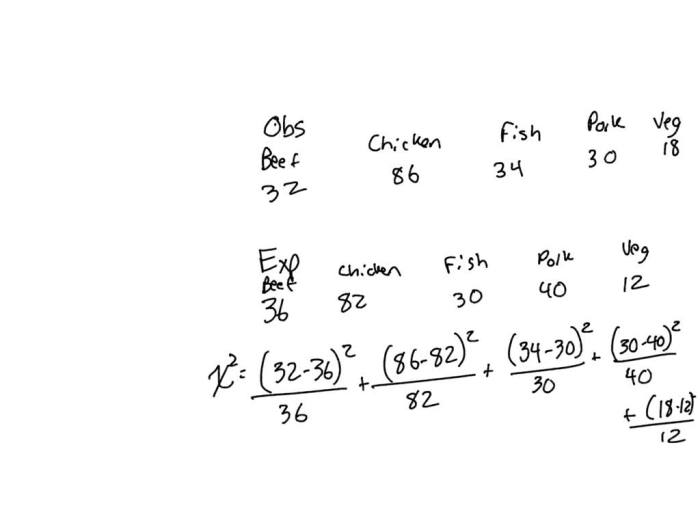 Obs
Beef Chicken Fish Pork Veg
32 86 34 30 18
Exp
Beef Chicken Fish Pork Veg
36 82 30 40 12
χ² = (32-36)²/36 + (86-82)²/82 + (34-30)²/30 + (30-40)²/40
+ (18-12)²/12